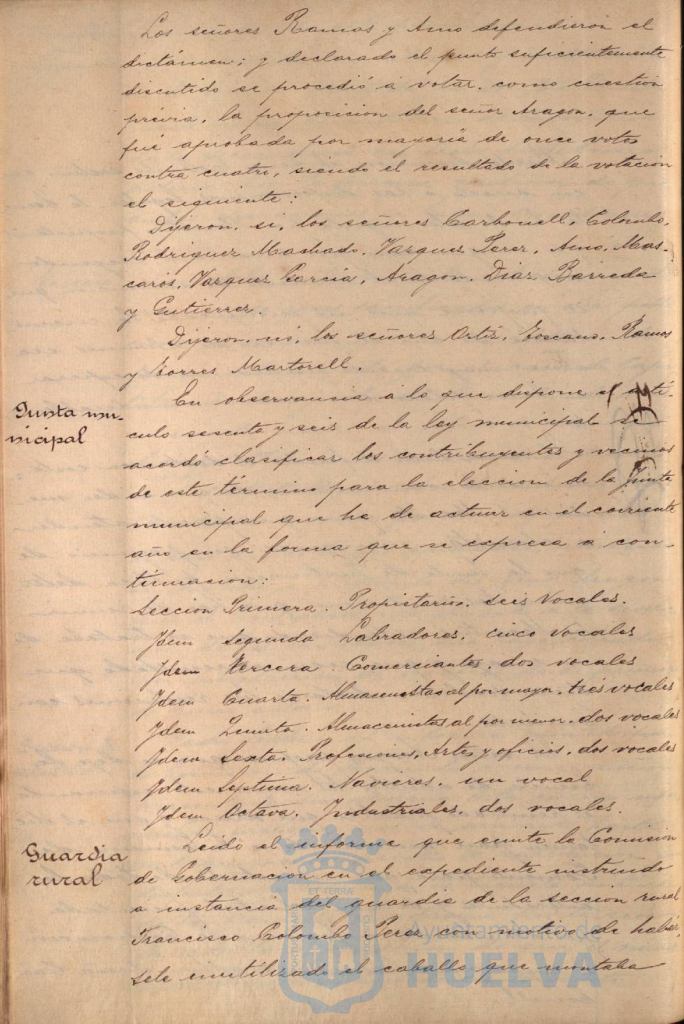 Los señores Ramos y Amo defendieron el
dictámen; y declarado el punto suficientemente
discutido se procedió á votar, como cuestion
prévia, la proposicion del señor Aragon, que
fué aprobada por mayoria de once votos
contra cuatro, siendo el resultado de la votacion
el siguiente:
Dijeron, si, los señores Carbonell, Colombo,
Rodriguez Machado, Vazquez Perez, Amo, Mas-
carós, Vazquez García, Aragon, Diaz Barreda
y Gutierrez.
Dijeron, nó, los señores Ortiz, Toscano, Ramos
y Torres Martorell.
Junta mu-
nicipal
En observancia á lo que dispone el artí-
culo sesenta y seis de la ley municipal se
acordó clasificar los contribuyentes y vecinos
de este término para la eleccion de la Junta
municipal que ha de actuar en el corriente
año en la forma que se expresa á con-
tinuacion:
Seccion Primera. Propietarios, seis Vocales.
Idem Segunda Labradores, cinco vocales
Idem Tercera. Comerciantes, dos vocales
Idem Cuarta. Almacenistas al por mayor, tres vocales
Idem Quinta. Almacenistas al por menor, dos vocales
Idem Sexta. Profesiones, Artes y oficios, dos vocales
Idem Septima. Navieros, un vocal
Idem Octava. Industriales, dos vocales.
Guardia
rural
Leido el informe que emite la Comision
de Gobernacion en el expediente instruido
a instancia del guardia de la seccion rural
Francisco Colombo Perez con motivo de habér-
sele inutilizado el caballo que montaba
Ayuntamiento de
HUELVA